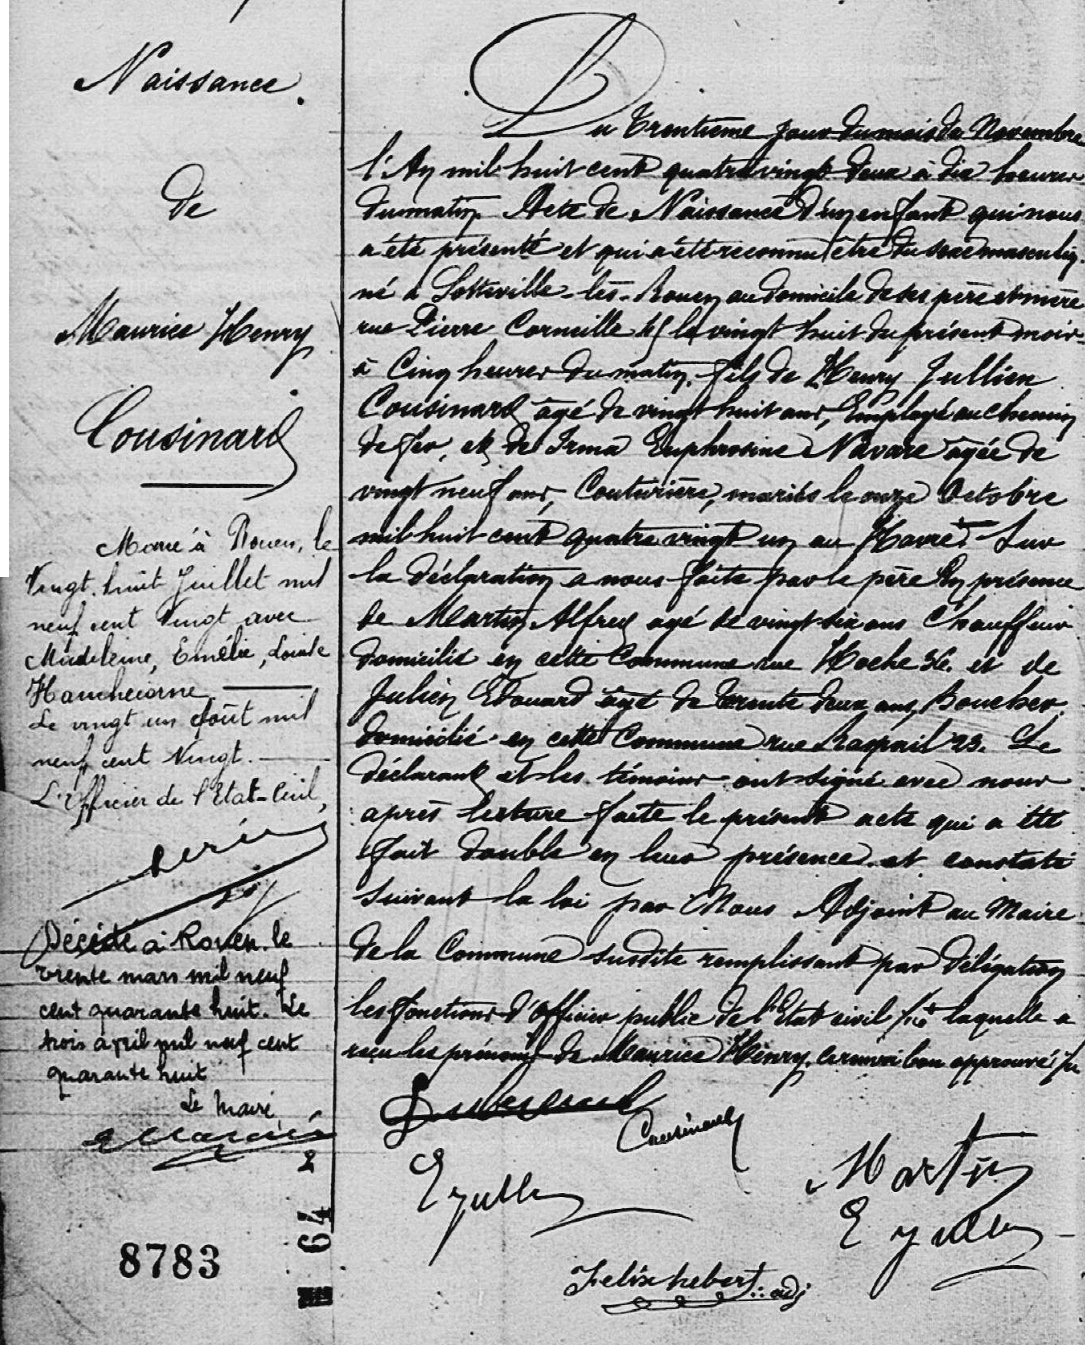 Naissance.
de
Maurice Henry
Cousinard
Marié à Rouen, le
Vingt huit Juillet mil
neuf cent Vingt avec
Madeleine, Emélie, Louise
Hauchecorne
Le vingt un Août mil
neuf cent Vingt.
L'Officier de l'Etat-Civil,
Décédé à Rouen le
trente mars mil neuf
cent quarante huit. Le
trois avril mil neuf cent
quarante huit
Le Maire
8783
64
Du trentième jour du mois de Novembre
l'An mil huit cent quatre vingt deux à dix heures
du matin. Acte de Naissance d'un enfant qui nous
a été présenté et qui a été reconnu être du sexe masculin.
né à Sotteville-lès-Rouen au domicile de ses père et mère
rue Pierre Corneille le vingt huit du présent mois
à Cinq heures du matin. fils de Henry Jullien
Cousinard âgé de vingt huit ans, Employé au chemin
de fer, et de Irma Euphrosine Navare âgée de
vingt neuf ans, Couturière, mariés le onze Octobre
mil huit cent quatre vingt un au Havre. Sur
la déclaration a nous faite par le père En présence
de Martin Alfred agé de vingt six ans Chauffeur
domicilié en cette Commune rue Hoche 36. et de
Julien Edouard âgé de trente deux ans, Boucher
domicilié en cette Commune rue Raspail 23. Le
déclarant et les témoins ont signé avec nous
après lecture faite le présent acte qui a été
fait double en leur présence et constaté
suivant la loi par Nous Adjoint au Maire
de la Commune susdite remplissant par délégation
les fonctions d'Officier public de l'Etat civil laquelle a
reçu les prénoms de Maurice Henry. bon approuvé
Cousinard
Martin
Felix hebert adj